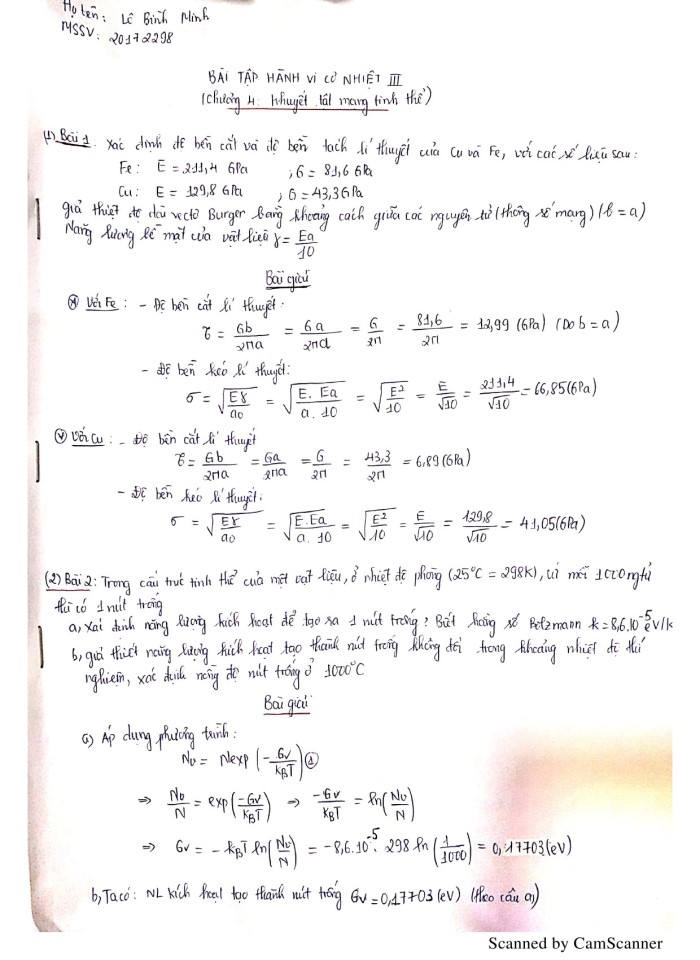 Họ tên: Lê Bình Minh
MSSV: 20172298
BÀI TẬP HÀNH VI CƠ NHIỆT III
(Chương 4: Khuyết tật mạng tinh thể)
(1) Bài 1: Xác định độ bền cắt và độ bền tách lí thuyết của Cu và Fe, với các số liệu sau:
Fe: E = 211,4 GPa ; G = 81,6 GPa
Cu: E = 129,8 GPa ; G = 43,3 GPa
giả thiết độ dài vectơ Burger bằng khoảng cách giữa các nguyên tử (thông số mạng) (b = a)
Năng lượng bề mặt của vật liệu γ = Ea/10
Bài giải
Với Fe: - Độ bền cắt lí thuyết:
τ = Gb/2πa = Ga/2πa = G/2π = 81,6/2π = 12,99 (GPa) (Do b = a)
- Độ bền kéo lí thuyết:
σ = √(Eγ/a₀) = √(E.Ea/a.10) = √(E²/10) = E/√10 = 211,4/√10 = 66,85 (GPa)
Với Cu: - Độ bền cắt lí thuyết
τ = Gb/2πa = Ga/2πa = G/2π = 43,3/2π = 6,89 (GPa)
- Độ bền kéo lí thuyết:
σ = √(Eγ/a₀) = √(E.Ea/a.10) = √(E²/10) = E/√10 = 129,8/√10 = 41,05 (GPa)
(2) Bài 2: Trong cấu trúc tinh thể của một vật liệu, ở nhiệt độ phòng (25°C = 298K), cứ mỗi 1000 ngtử
thì có 1 nút trống
a, xác định năng lượng kích hoạt để tạo ra 1 nút trống? Biết hằng số Bolzmann k = 8,6.10⁻⁵ eV/k
b, giả thiết năng lượng kích hoạt tạo thành nút trống không đổi trong khoảng nhiệt độ thí
nghiệm, xác định nồng độ nút trống ở 1000°C
Bài giải
a) Áp dụng phương trình:
Nv = Nexp(-Gv/kBT) (1)
⇒ Nv/N = exp(-Gv/kBT) ⇒ -Gv/kBT = ln(Nv/N)
⇒ Gv = -kBT ln(Nv/N) = -8,6.10⁻⁵. 298 ln(1/1000) = 0,17703 (eV)
b, Ta có: NL kích hoạt tạo thành nút trống Gv = 0,17703 (eV) (theo câu a)
Scanned by CamScanner